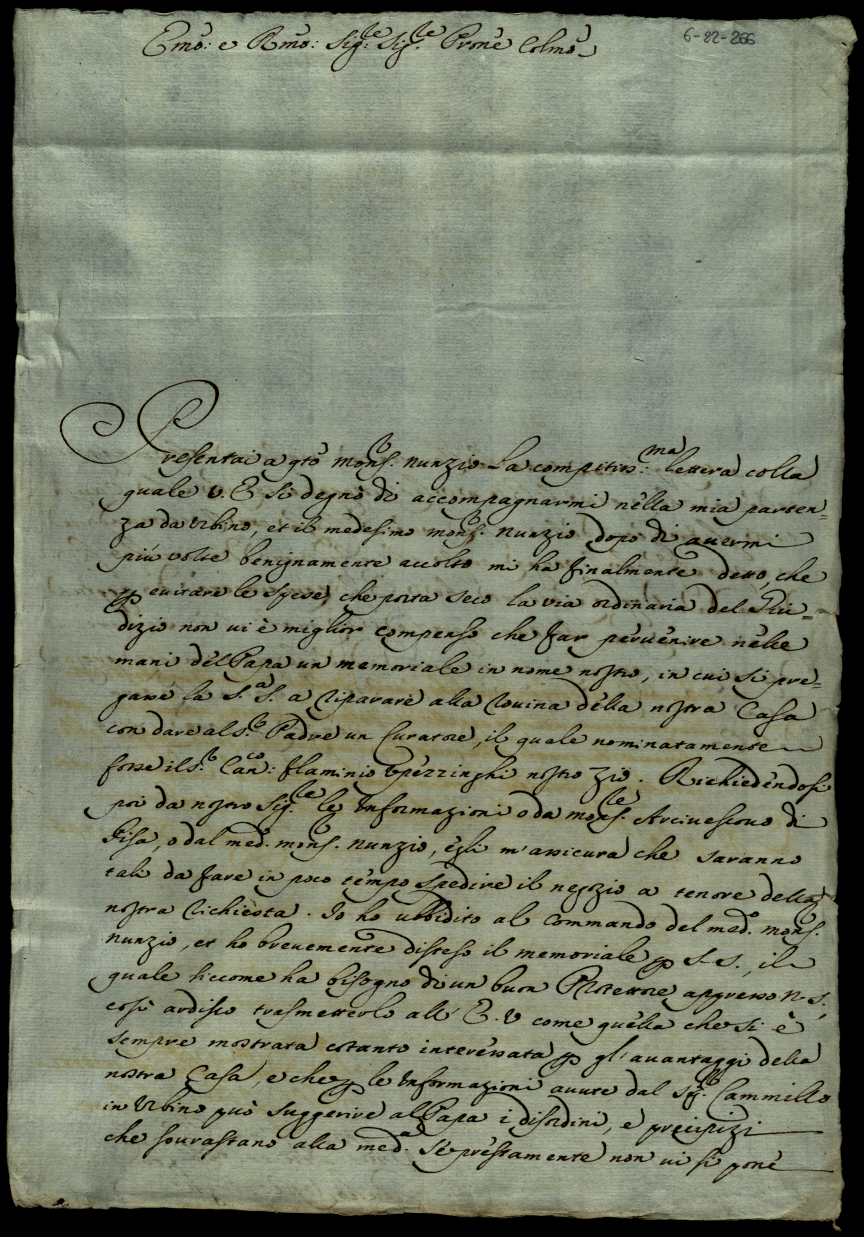 6-82-266
Emo: e Rmo: Sig:re Sig:re Prone Colmo
Presentai a qto Mons.r Nunzio la compitiss:ma lettera colla
quale V. E si degnò di accompagnarmi nella mia parten-
za da Urbino, et il medesimo Mons.r Nunzio dopo di avermi
più volte benignamente accolto mi ha finalmente detto, che
p evitare le spese, che porta seco la via ordinaria del Giu-
dizio non vi è miglior compenso che far pervenire nelle
mani del Papa un memoriale in nome nostro, in cui si pre-
gasse la S.a S. a riparare alla rovina della nostra Casa
con dare al S.r Padre un Curatore, il quale nominatamente
fosse il S.r Can:co Flaminio Upezzinghi nostro zio. Richiedendosi
poi da nostro Sig:re le Informazioni o da Mons.re Arcivescovo di
Pisa, o dal med.o Mons.r Nunzio, egli m'assicura che saranno
tali da fare in poco tempo spedire il negozio a tenore della
nostra richiesta. Io ho ubbidito al commando del med.o Mons.r
Nunzio, et ho brevemente disteso il memoriale p S. S., il
quale siccome ha bisogno di un buon Protettore appresso N. S.,
così ardisco trasmetterlo all' E. V come quella che si è
sempre mostrata cotanto interessata p gl'avantaggi della
nostra Casa, e che p le Informazioni avute dal Sig.r Cammillo
in Urbino può suggerire al Papa i disordini, e precipizi
che sovrastano alla med.a se prestamente non vi si pone